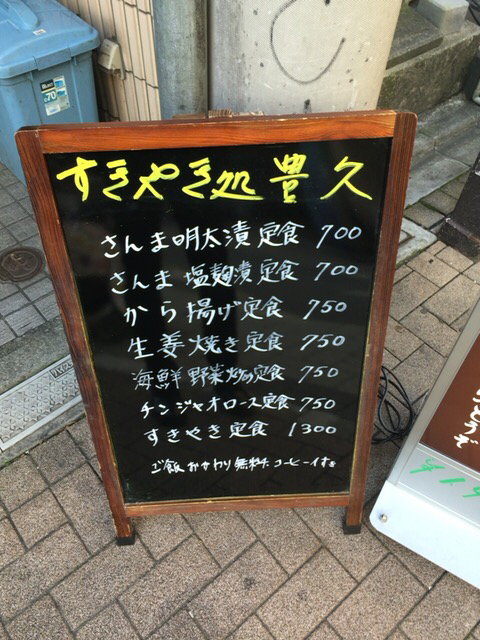 すきやき処 豊久
さんま明太漬定食 700
さんま塩麹漬定食 700
から揚げ定食 750
生姜焼き定食 750
海鮮野菜炒め定食 750
チンジャオロース定食 750
すきやき定食 1300
ご飯おかわり無料 コーヒー付き
70